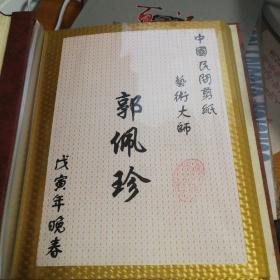 中國民间剪紙
藝術大師
郭佩珍
戊寅年晚春